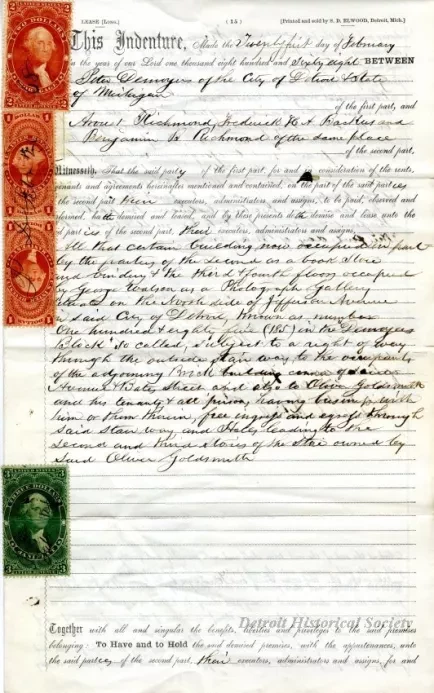 LEASE (Long.) (14) [Printed and sold by S. D. ELWOOD, Detroit, Mich.]
This Indenture, Made the Twenty first day of February
in the year of our Lord one thousand eight hundred and Sixty eight BETWEEN
Peter Demoyers of the City of Detroit & State
of Michigan
of the first part, and
Richmond, Frederick A and
Benjamin Richmond of the same place
of the second part,
Witnesseth, That the said party of the first part, for and in consideration of the rents,
covenants and agreements hereinafter mentioned and contained, on the part of the said parties
the second their executors, administrators, and assigns, to be paid, observed and
performed, hath demised and leased, and by these presents doth demise and lease unto the
said parties of the second part, their executors, administrators and assigns,
All that certain building now occupied in part
by the parties of the second as a book Store
and bindery & the third & fourth floors occupied
by George Watson as a Photograph Gallery
situate on the North side of Jefferson Avenue
in said City of Detroit, known as number
One hundred & eighty five (185) in the Demoyers
Block so called, subject to a right of way
through the outside stair way to the occupants
of the adjoining Brick building corner of
Avenue & Bates Street and also to Oliver Goldsmith
and his tenants & all persons having business with
him or them therein, free ingress and egress through
said stair way and Halls leading to the
second and third stories of the Store owned by
said Oliver Goldsmith
Together with all and singular the benefits, liberties and privileges to the said premises
belonging: To Have and to Hold the said demised premises, with the appurtenances, unto
the said parties of the second part, their executors, administrators and assigns, for and
Detroit Historical Society